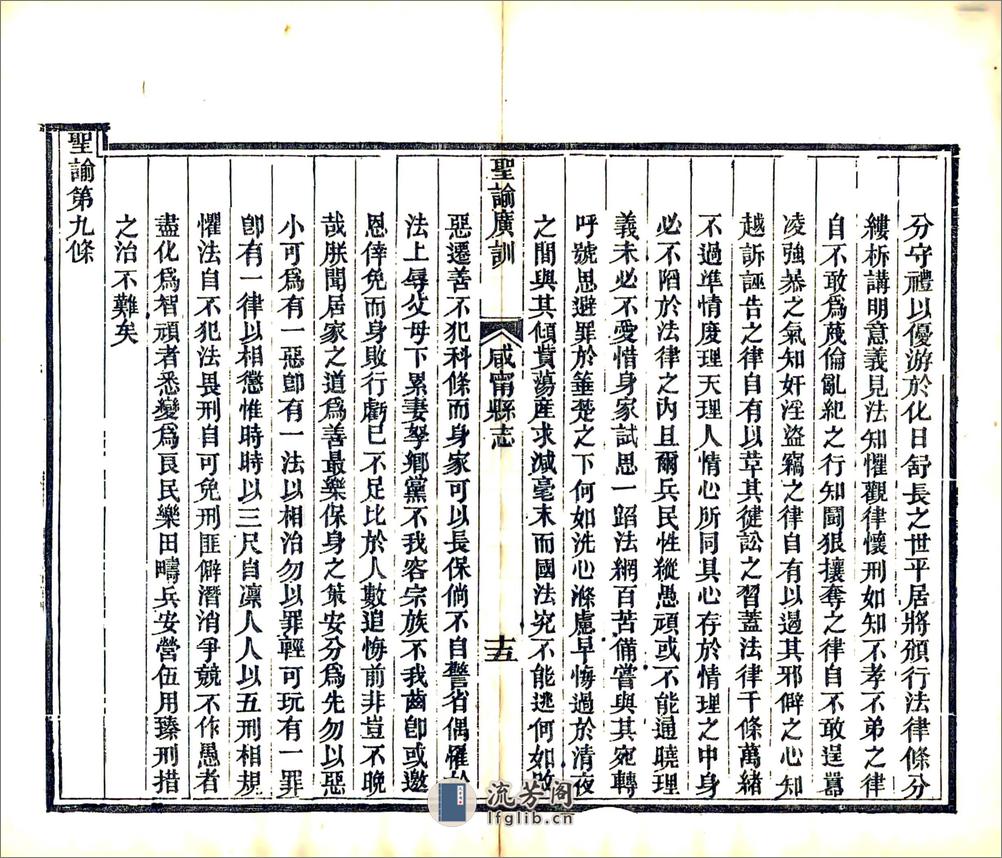 分守禮以優游於化日舒長之世平居將頒行法律條分
縷析講明意義見法知懼觀律懷刑如知不孝不弟之律
自不敢爲蔑倫亂紀之行知鬭狠攘奪之律自不敢逞囂
凌强暴之氣知奸淫盜竊之律自有以遏其邪僻之心知
越訴誣告之律自有以革其徤訟之習蓋法律千條萬緒
不過準情度理天理人情心所同具心存於情理之中身
必不陷於法律之內且爾兵民性縱愚頑或不能通曉理
義未必不愛惜身家試思一蹈法網百苦備嘗與其宛轉
呼號思避罪於箠楚之下何如洗心滌慮早悔過於清夜
之間與其傾貲蕩産求減毫末而國法究不能逃何如改
聖諭廣訓
咸甯縣志
十五
惡遷善不犯科條而身家可以長保倘不自警省偶罹於
法上辱父母下累妻孥鄉黨不我容宗族不我齒卽或邀
恩倖免而身敗行虧已不足比於人數追悔前非豈不晚
哉朕聞居家之道爲善最樂保身之策安分爲先勿以惡
小可爲有一惡卽有一法以相治勿以罪輕可玩有一罪
卽有一律以相懲惟時時以三尺自凜人人以五刑相規
懼法自不犯法畏刑自可免刑匪僻潛消爭競不作愚者
盡化爲智頑者悉變爲良民樂田疇兵安營伍用臻刑措
之治不難矣
聖諭第九條
流芳阁
lfglib.cn